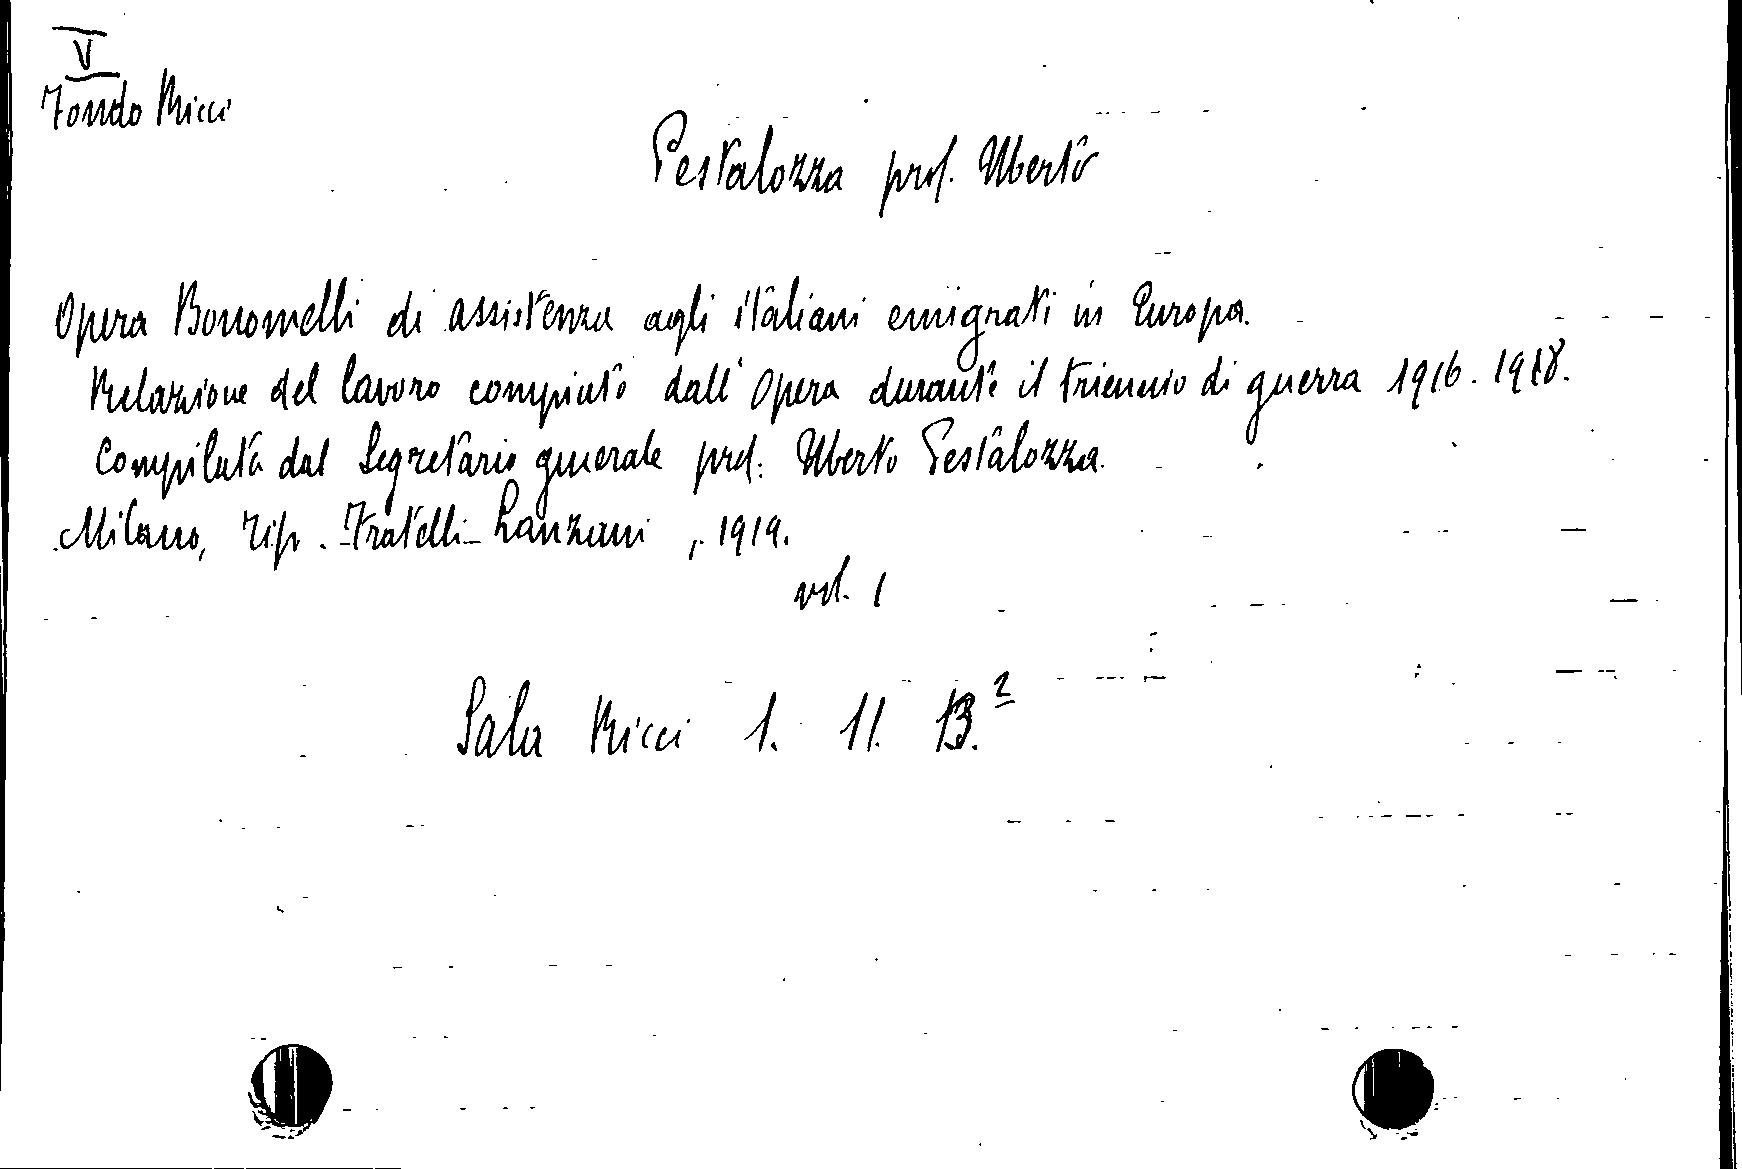 V
Fondo Ricci
Pestalozza prof. Uberto
Opera Bonomelli di assistenza agli italiani emigrati in Europa.
Relazione del lavoro compiuto dall'Opera durante il triennio di guerra 1916-1918.
Compilata dal Segretario generale prof. Uberto Pestalozza.
Milano, Tip. Fratelli Lanzani, 1919.
vol. 1
Sala Ricci 1. 11. B.²